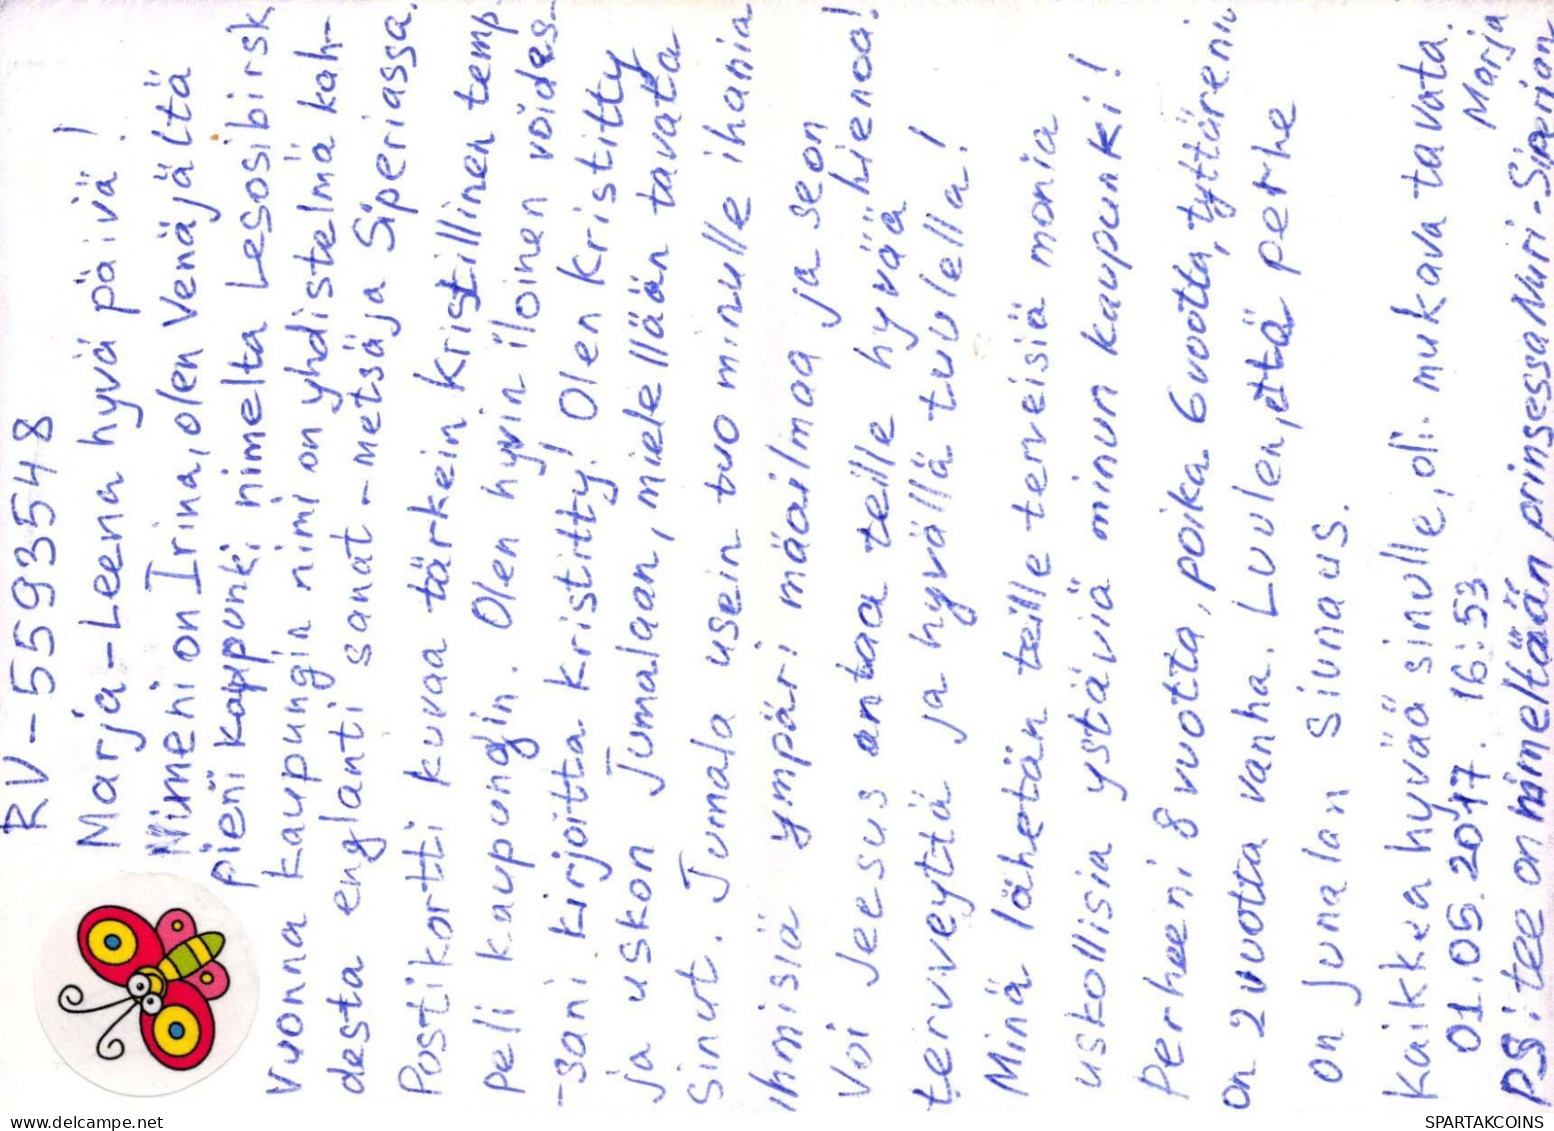 RV-5593548
Marja-Leena hyvä päivä!
Nimeni on Irina, olen Venäjältä
pieni kaupunki nimelta Lesosibirsk
Vuonna kaupungin nimi on yhdistelmä kah-
desta englanti sanat-metsä ja Siperiassa.
Postikortti kuvaa tärkein kristillinen temp
peli kaupungin. Olen hyvin iloinen voides-
-sani kirjoitta kristitty! Olen kristitty
ja uskon Jumalaan, mielellään tavata
Sinut. Jumala usein tuo minulle ihania
ihmisiä ympäri mäailmaa ja se on
hienoa!
Voi Jeesus antaa teille hyvää
terveyttä ja hyvällä tuulella!
Minä lähetän teille terveisiä monia
uskollisia ystäviä minun kaupunki!
Perheeni 8 vuotta, poika 6 vuotta, tyttäreni
on 2 vuotta vanha. Luulen, että perhe
on Junalan siunaus.
Kaikkea hyvää sinulle, oli mukava tavata.
01.05.2017. 16:53 Marja
PS: tee on nimeltään prinsessa Nuri-
SPARTAKCOINS
www.delcampe.net